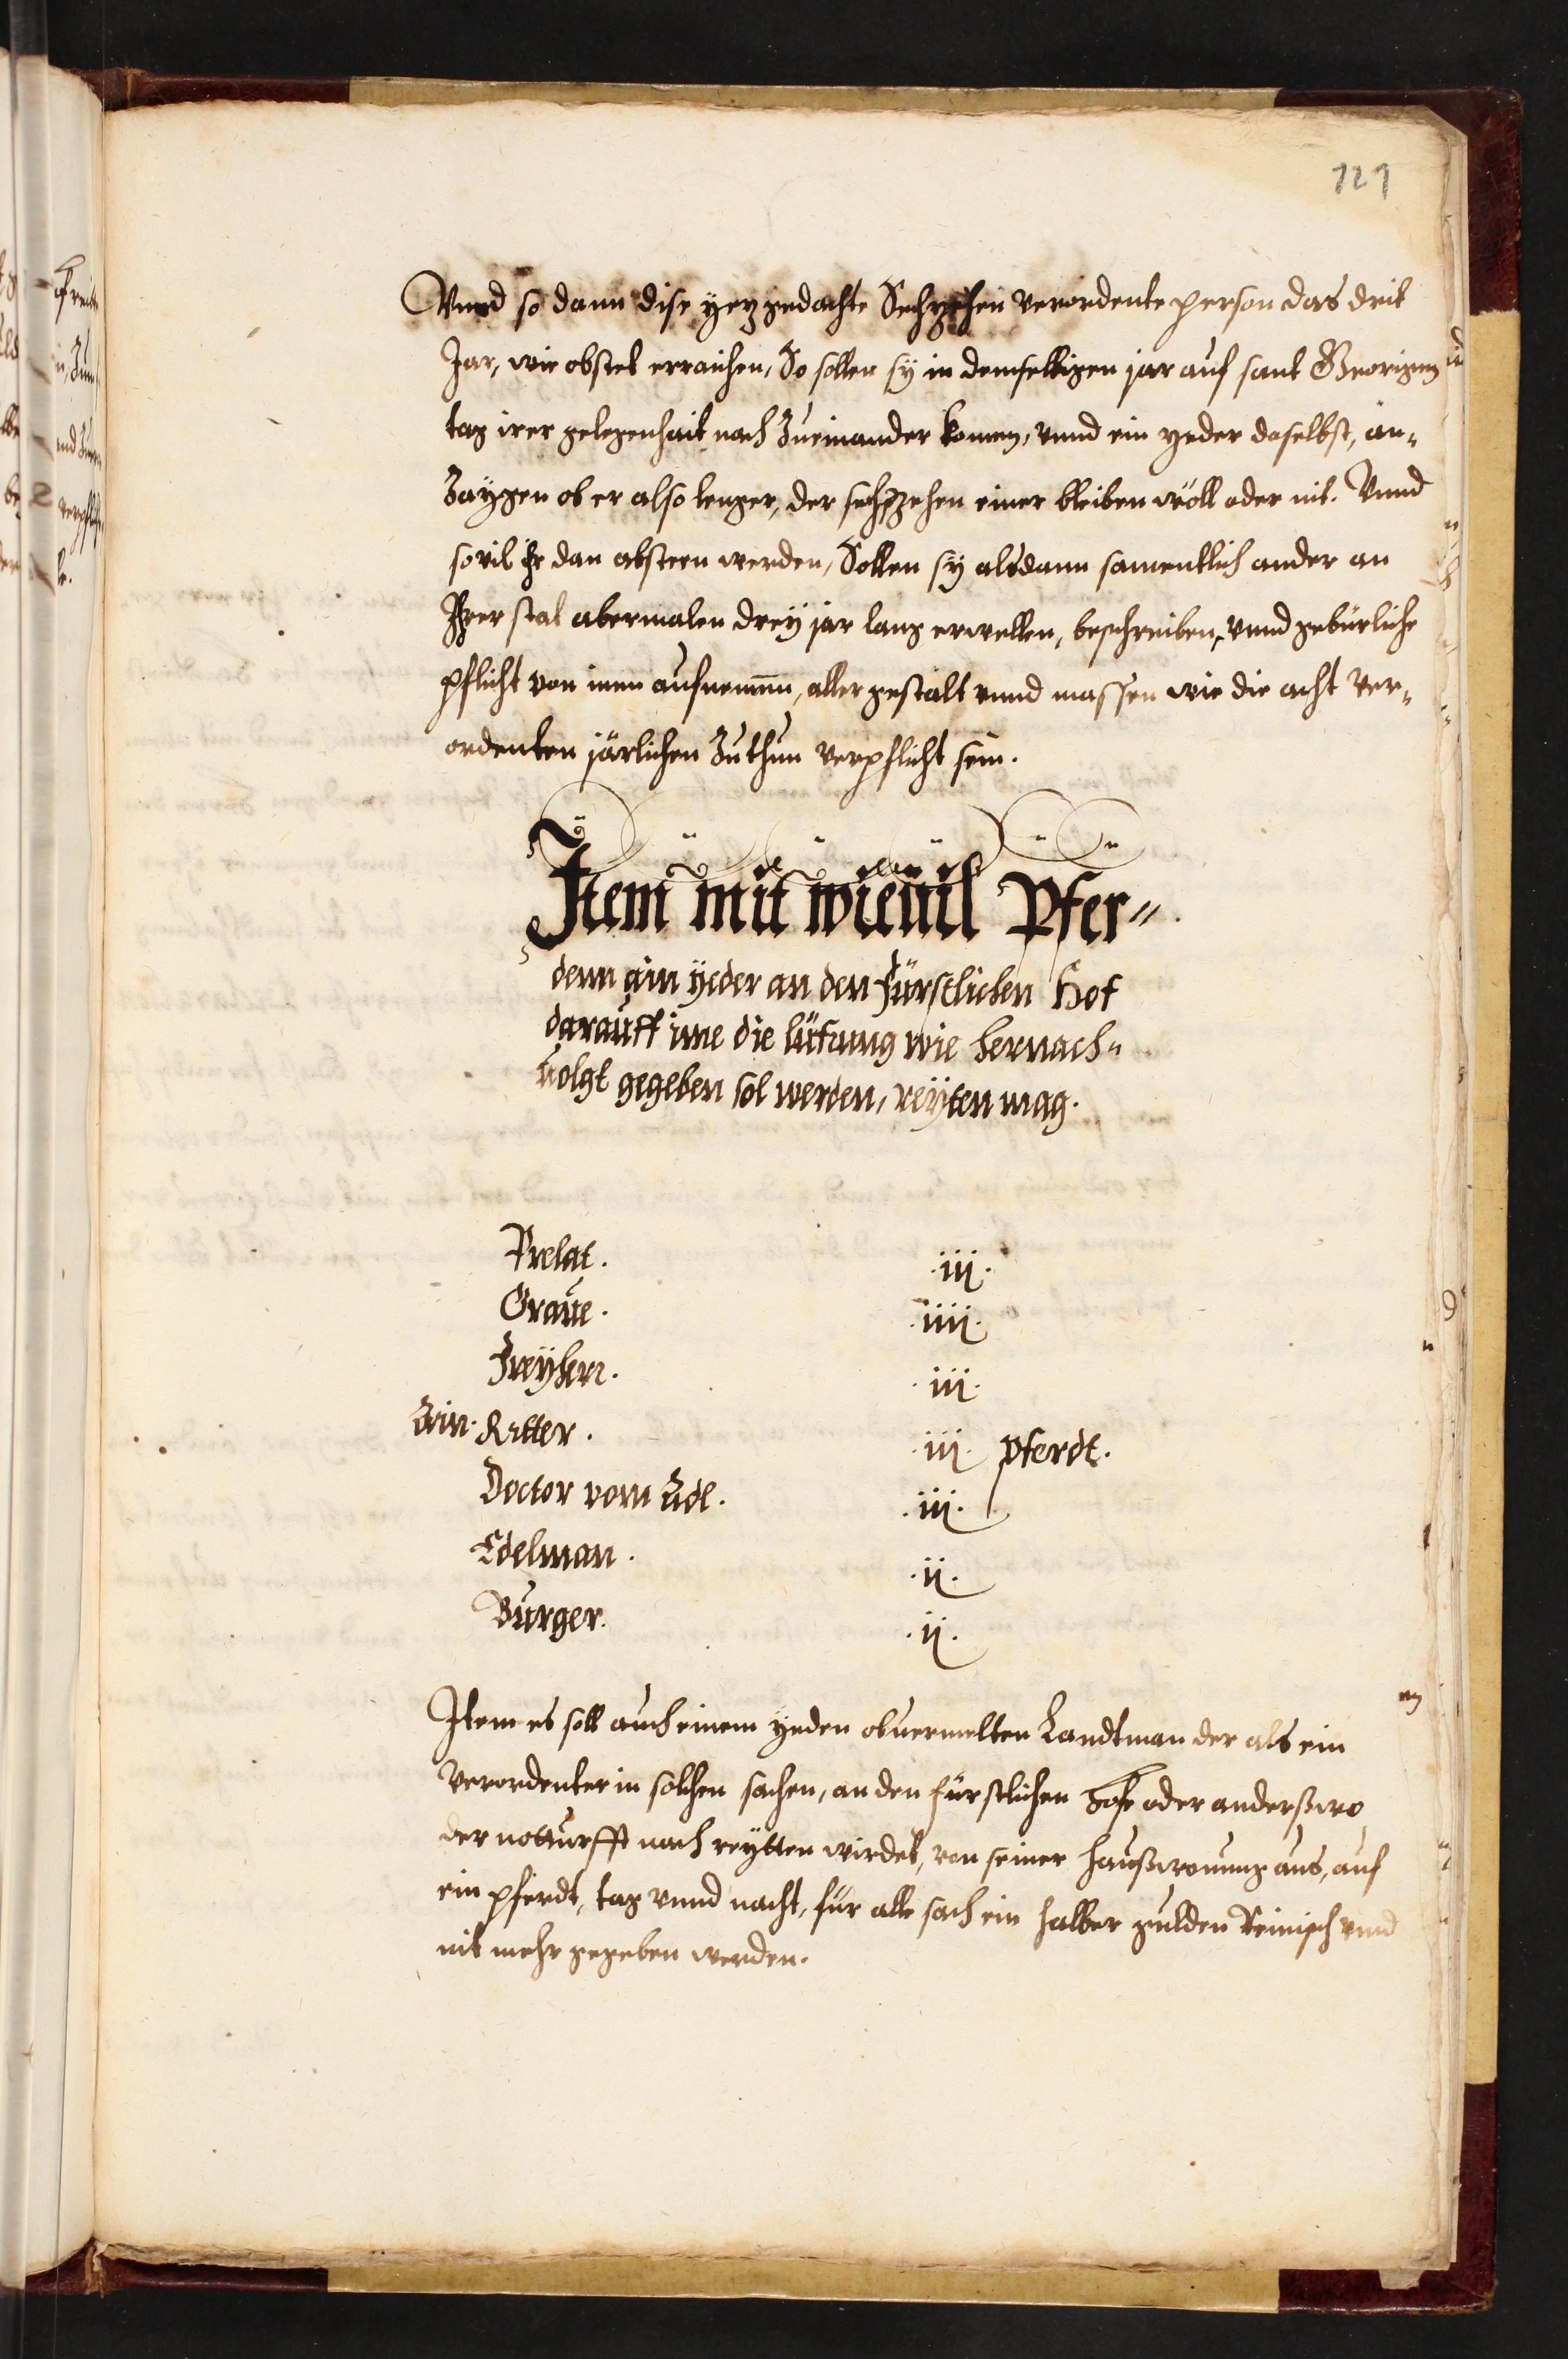 121
Vnnd so dann dise yetzgedachte Sechzehen verordente person das drit
Jar, wie obstet erraichen, So sollen sy in demselbigen jar auf sant Georigen
tag irer gelegenhait nach Zueinander komen, vnnd ein yeder daselbst, an„
Zaygen ob er also lenger, der sechzehen einer bleiben wöll oder nit. Vnnd
sovil Ir dan absteen werden, Sollen sy alsdann samentlich ander an
Irer stat abermalen drey jar lang erwellen, beschreiben, vnnd gebürliche
pflicht von inen aufnemmen, aller gestalt vnnd massen wie die acht ver„
ordenten järlichen Zuthun verpflicht sein.
Item mit wieuil Pfer„
denn ain yeder an den fürstlichen Hof
darauff ime die lüfrung wie hernach„
uolgt gegeben sol werden, reyten mag.
Prelat. .iij.
Graue. .iiij.
Freyherr. .iij.
Ain. Ritter. .iij. pferdt.
Doctor vom Adl. .iij.
Edelman. .ij.
Burger. .ij.
Item es soll auch einem yeden obuermelten Landtman der als ein
Verordenter in solchen sachen, an den fürstlichen Hofe oder anderßwo
der notturfft nach reytten wirdet, von seiner haußwonung aus, auf
ein pferdt, tag vnnd nacht, für alle sach ein halber gulden Reinisch vnnd
nit mehr gegeben werden.